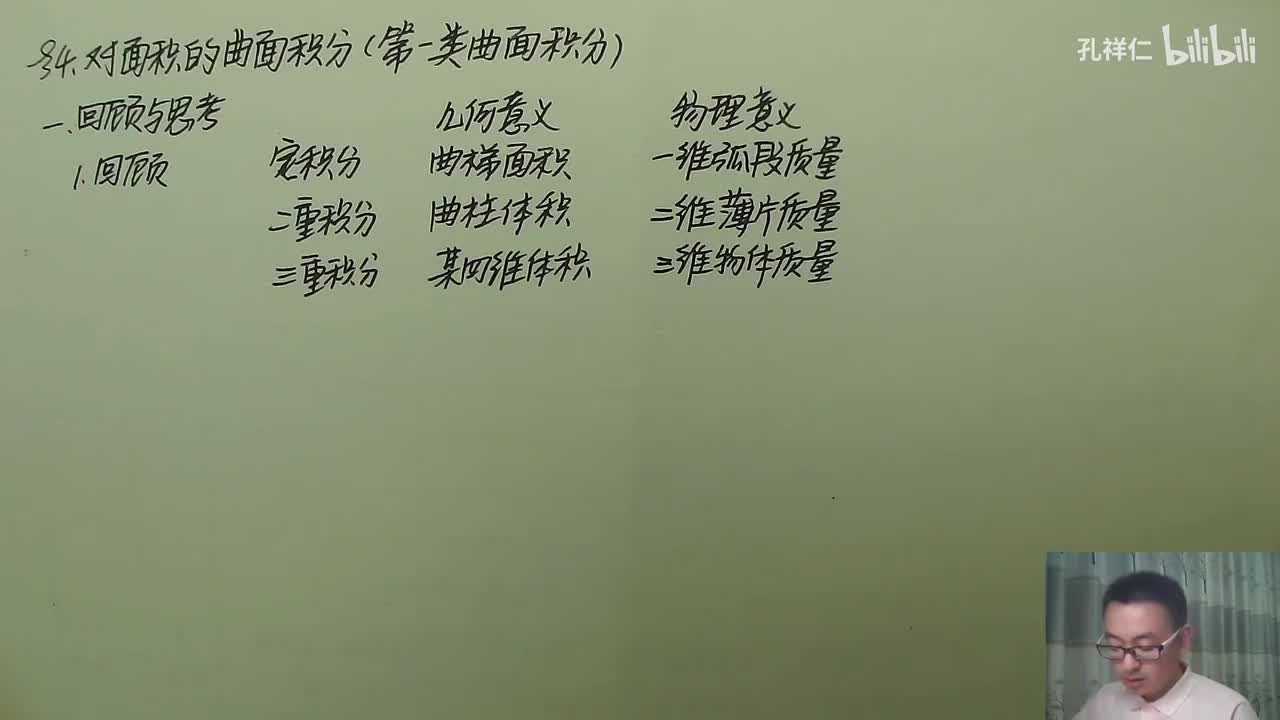 §4. 对面积的曲面积分(第一类曲面积分)
孔祥仁 bilibili
一、回顾与思考 几何意义 物理意义
1.回顾 定积分 曲梯面积 一维弧段质量
二重积分 曲柱体积 二维薄片质量
三重积分 某四维体积 三维物体质量